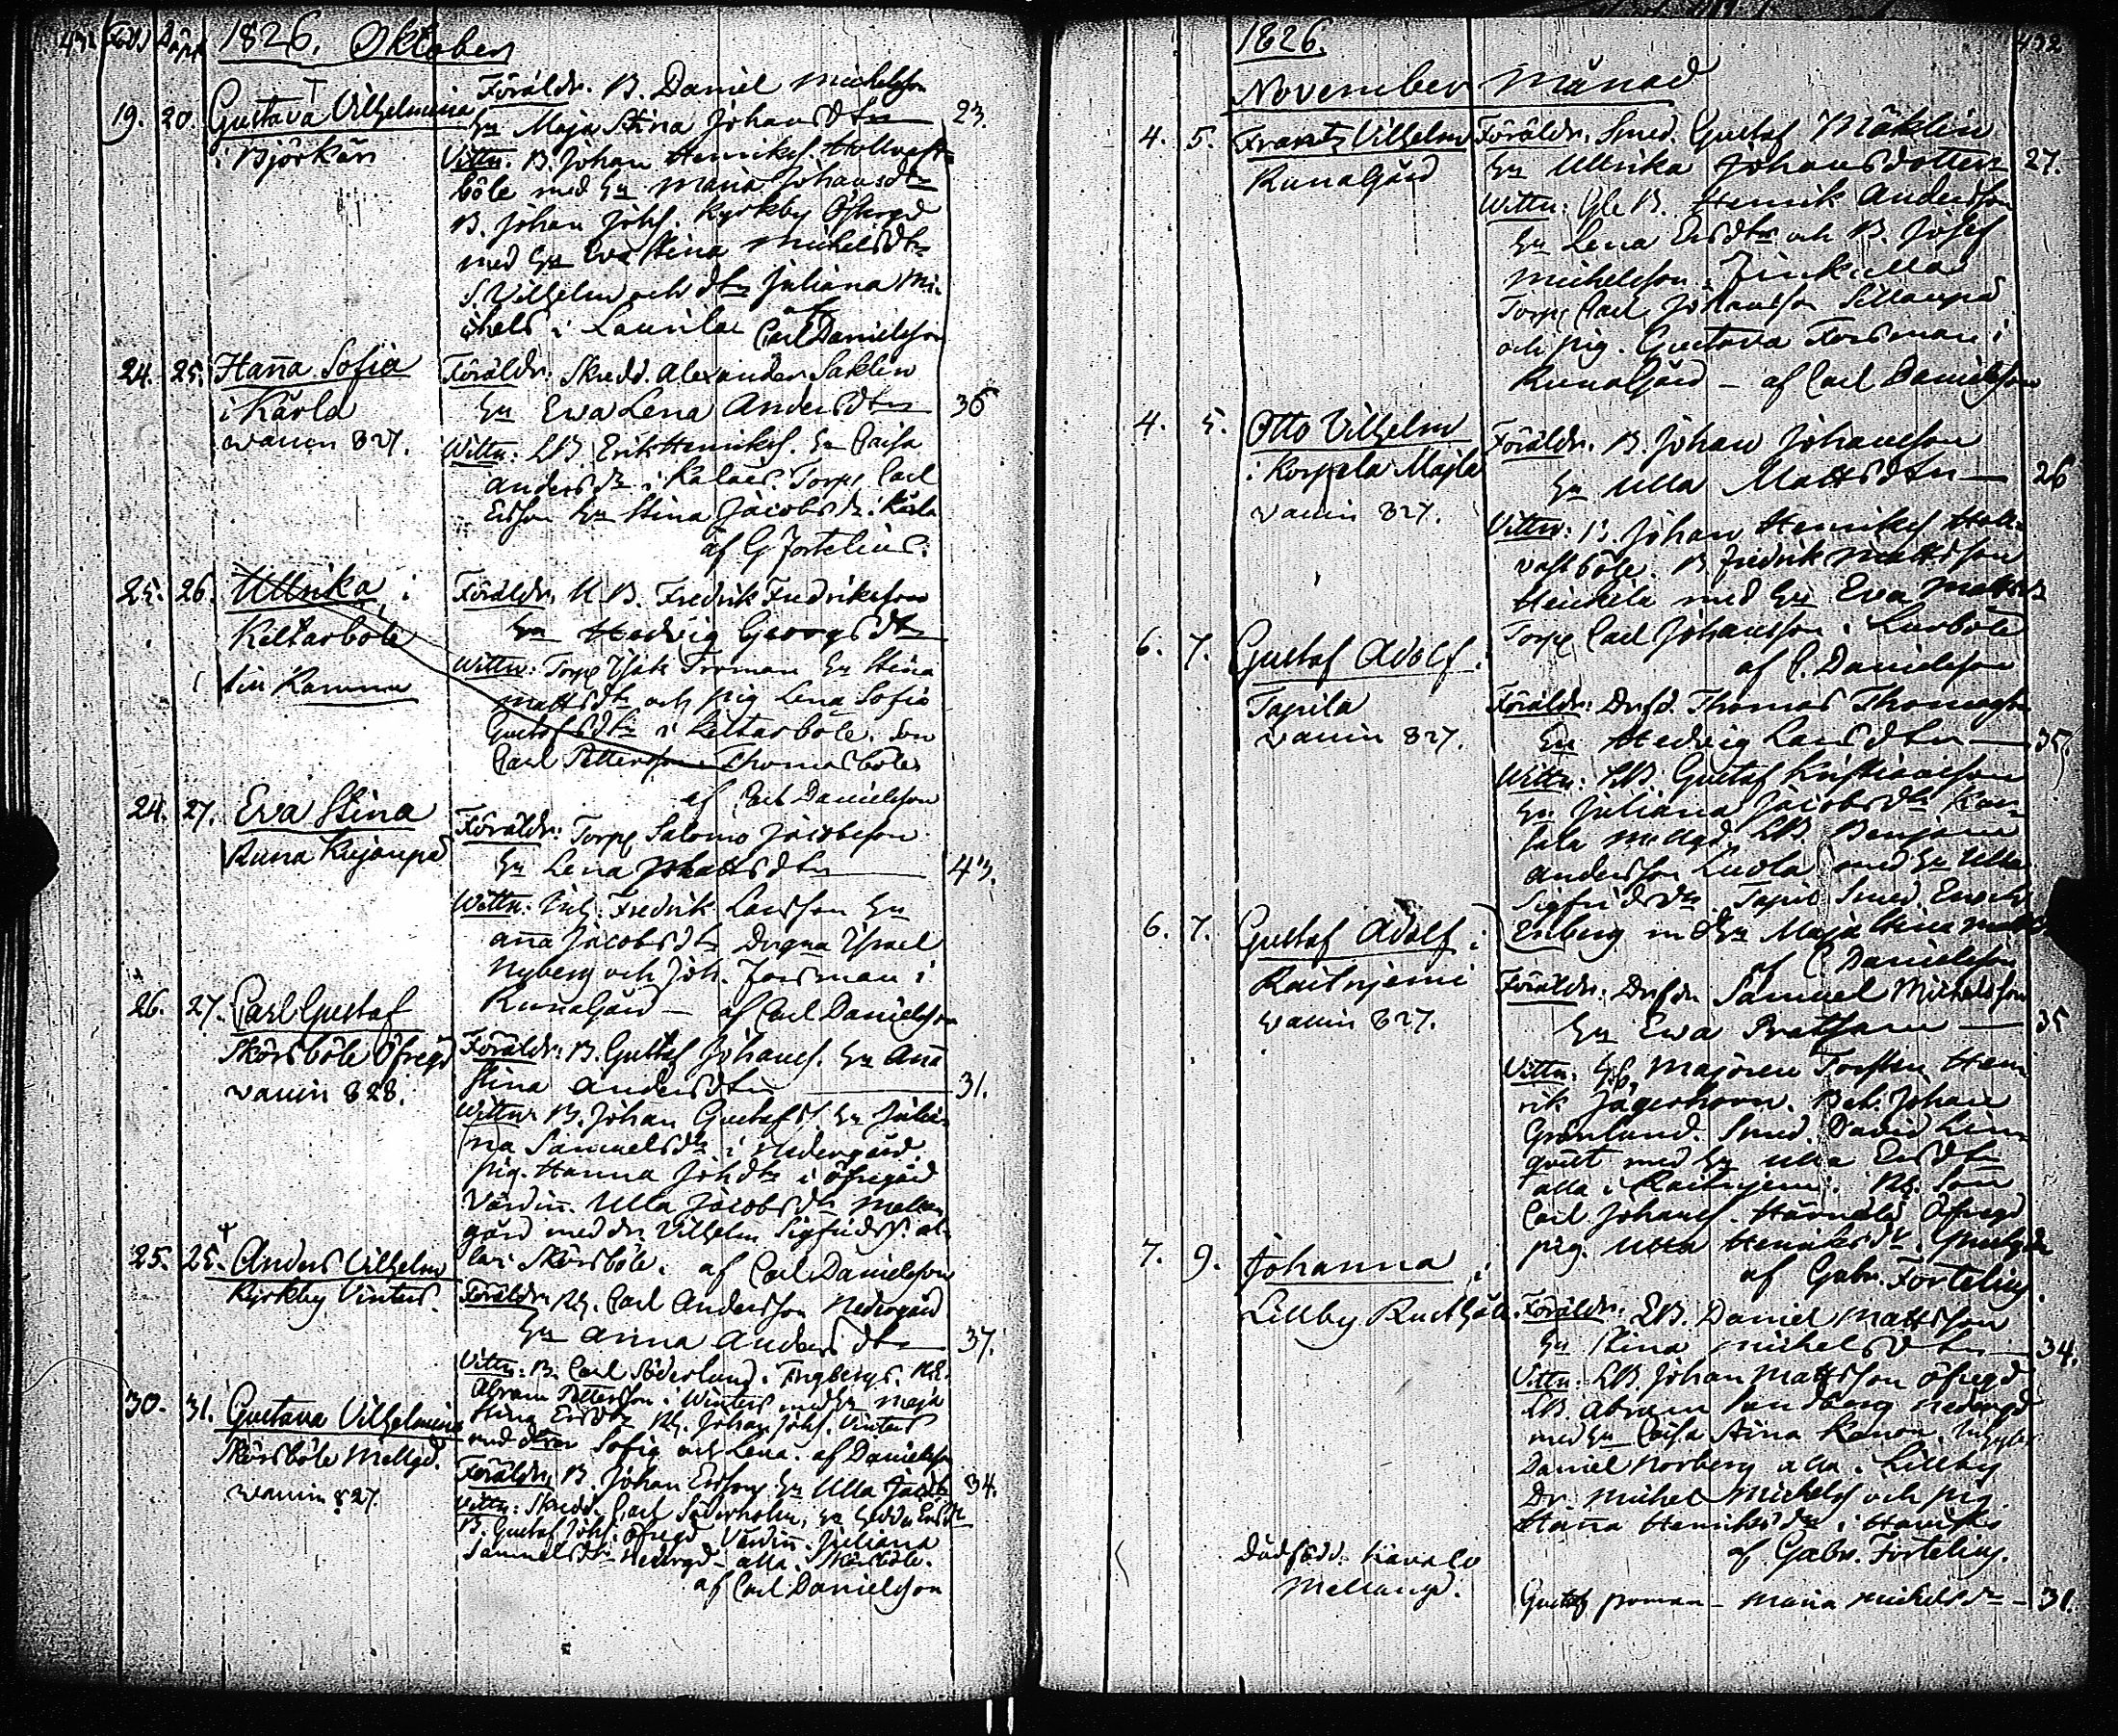 1826. Oktober
19. 20. Gustava Vilhelmina
i Björkän
Föräldr. B. Daniel Michelsson
Hu Maja Stina Johansdtr 23.
Vittn: B. Johan Henriks. Hollvast-
böle med Hu Maria Johansdtr
B. Johan Johs. Kyrkby Öfregd
med Hu Eva Stina Michelsdtr
S. Vilhelm och dtr Juliana Mi-
chels i Laurila
af Carl Danielsson
24. 25. Hanna Sofia
i Kärla
vaccin 827.
Föräldr. Skredd. Alexander Saklin
Hu Ewa Lena Andersdtr 36
Wittn: LB. Erik Henriks. Hu Caisa
Andersdr i Kalaes. Torp. Carl
Ersson Hu Stina Jacobsdr i Kärla
af G. Fortelius.
25. 26. Ullrika i
Keltarböle
till Kamma
Föräldr. U.B. Fredrik Fredriksson
Hu Hedvig Georgsdtr
Wittn: Torp Isak Froman Hu Stina
Mattsdtr och pig Lena Sofia
Gustafsdtr i Keltarböle. Son
Carl Pettersson Thomasböle
af Carl Danielsson
24. 27. Eva Stina
Runa
Föräldr: Torp Salomo Jacobsson
Hu Lena Mattsdtr 43.
Wittn: Fredrik Larsson Hu
Anna Jacobsdtr Israel
Nyberg och Joh. Forsman i
Runagård — af Carl Danielsson
26. 27. Carl Gustaf
Skörsböle Öfregd
vaccin 828.
Föräldr. B. Gustaf Johans. Hu Anna
Stina Andersdtr 31.
Wittn B. Johan Gustafs. Hu Julia-
na Samuelsdr i Nedergård.
pig. Hanna Johdtr i Öfregård
Värdinn. Ulla Jacobsdr Mellan-
gård med dr. Vilhelm Sigfrids. al-
la i Skörsböle. af Carl Danielsson
25. 25. Anders Vilhelm
Kyrkby Vinters.
Föräldr. Carl Andersson Nedergård
Hu Anna Andersdtr 37.
Vittn: B. Carl Söderlund. Engbergs.
Abram Pettersson i Winters med Hu Maja
Stina Ersdtr Johan Johs. Vinters
med Sofia och Lena. af Danielsson
30. 31. Gustava Vilhelmina
Skörsböle Mellgd.
vaccin 827
Föräldr. B. Johan Ersson Hu Ulla Jacobdr 34.
Vittn: Skredd. Carl Söderholm, Hu Hedda Ersdtr
B. Gustaf Johs. Öfregd Värdinn. Juliana
Samuelsdtr Nedergd - alla i Skörsböle.
af Carl Danielsson
1826.
November Månad
4. 5. Frantz Vilhelm
Runagård
Föräldr. Smed. Gustaf Mäklin
Hu Ullrika Johansdotter 27.
Wittn: Gle B. Henrik Andersson
Hu Lena Ersdtr och B. Josef
Michelsson i Finkulla
Torp. Carl Johansson Sillanpää
och pig. Gustava Forsman i
Runagård — af Carl Danielsson
4. 5. Otto Vilhelm
i Korpela Majla
vaccin 827.
Föräldr. B. Johan Johansson
Hu Ulla Mattsdtr — 26
Vittn: B. Johan Henriks Holl-
vastböle. B Fredrik Mattsson
Heickilä med Hu Eva Mattsdr
Torp Carl Johansson i Lurböle
af C. Danielsson
6. 7. Gustaf Adolf i
Tapila
vaccin 827.
Föräldr: Thomas Thomasson
Hu Hedvig Larsdtr — 35.
Wittn: LB. Gustaf Kristiansson
Hu Juliana Jacobsdtr Kan-
sala Mellgd. LB. Benjamin
Andersson Luola med Hu Ulla
Sigfridsdtr Tapila Smed. Erich
Enberg med Hu Maja Stina
af C. Danielsson
6. 7. Gustaf Adolf i
Raitniemi
vaccin 827.
Föräldr. Samuel Michelsson
Hu Ewa — 35
Vittn. Majoren Torsten Hen-
rik Jägerhorn. Bet. Johan
Grönlund. Smed. David Lin-
qvist med Hu Ulla Ersdtr
alla i Raitniemi. Son
Carl Johans. Öfregd
pig. Ulla Henriksdtr
af Gabr. Fortelius.
7. 9. Johanna i
Lillby
Föräldr. LB. Daniel Mattsson
Hu Stina Michelsdtr — 34.
Vittn: LB. Johan Mattsson Öfregd
LB. Abram Sundberg Nedergd
med Hu Caisa Stina
Daniel Norberg alla i Lillby
Dr. Michel Michels och pig.
Hanna Henriksdtr i
af Gabr. Fortelius.
Dödfödd. Kavalo
Mellangd.
Gustaf Froman — Maria Michelsdr — 31.